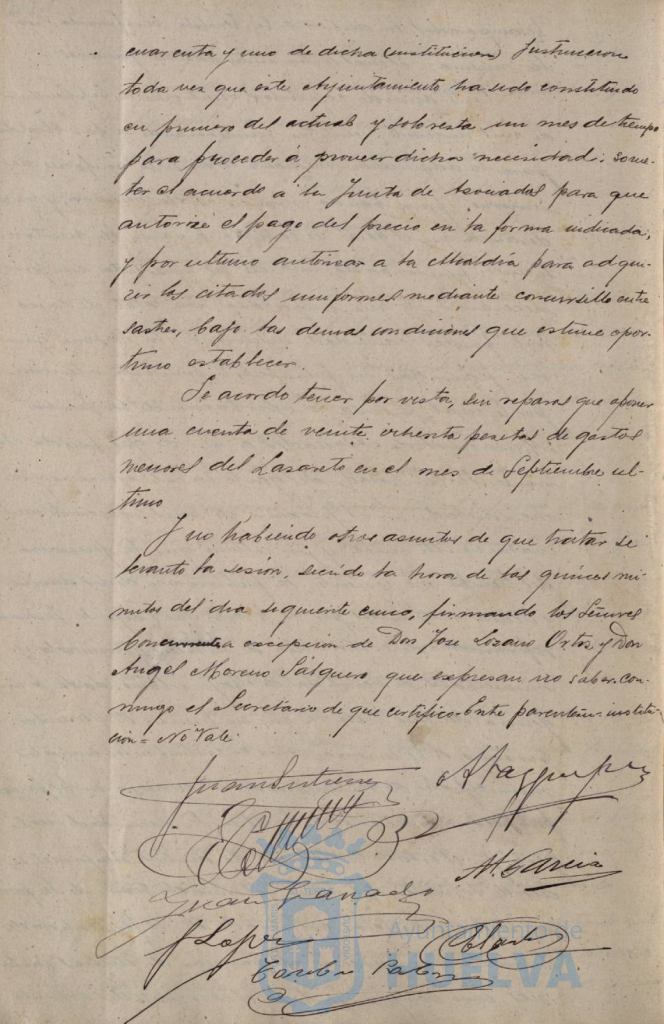 cuarenta y uno de dicha (institucion) Instruccion
toda vez que este Ayuntamiento ha sido constituido
en primero del actual y solo resta un mes de tiempo
para proceder á proveer dicha necesidad; some-
ter el acuerdo á la Junta de Asociados para que
autorize el pago del precio en la forma indicada,
y por ultimo autorizar a la Alcaldía para adqui-
rir los citados uniformes mediante concursillo entre
sastres, bajo las demas condiciones que estime opor-
tuno establecer.
Se acordo tener por vista, sin reparos que oponer
una cuenta de veinte pesetas de gastos
menores del Lazareto en el mes de Septiembre ul-
timo
Y no habiendo otros asuntos de que tratar se
levanto la sesión, siendo la hora de las quince mi-
nutos del dia siguiente cinco, firmando los Señores
Concurrentes a excepcion de Don Jose Lozano Ortos y Don
Angel Moreno Salguero que expresan no saber con-
migo el Secretario de que certifico. Entre parentesis = institu-
cion = No Vale.
Juan Gutierrez
Juan Granado
M. Garcia
J Lopez
Ayuntamiento de
HUELVA